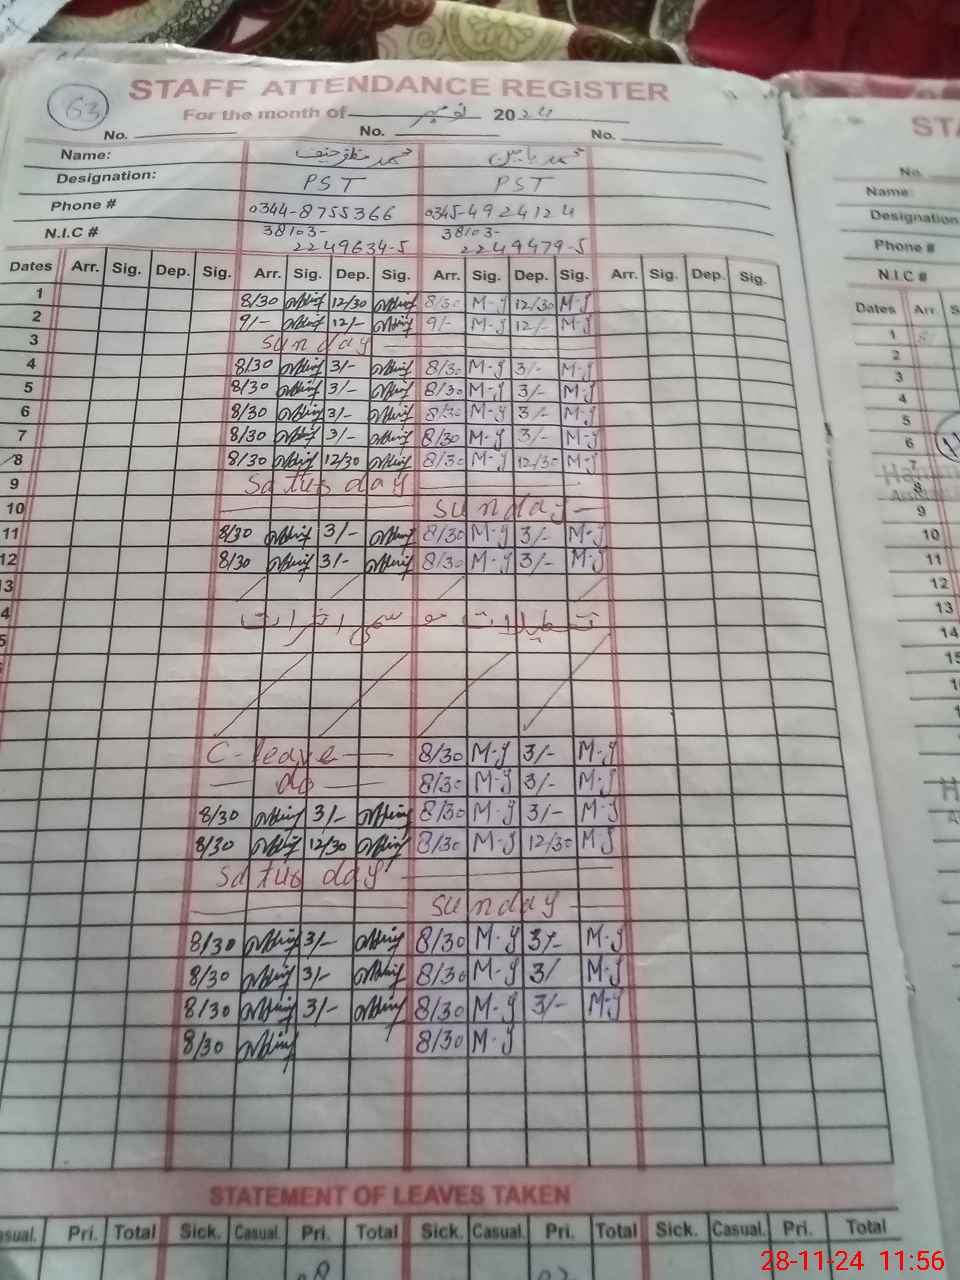 63
STAFF ATTENDANCE REGISTER
For the month of نومبر 2024
No. No. No.
Name: محمد مظفر حنیف محمد یاسین
Designation: PST PST
Phone # 0344-8755366 0345-4924124
N.I.C # 38103-2249634-5 38103-2249479-5
Dates Arr. Sig. Dep. Sig. Arr. Sig. Dep. Sig. Arr. Sig. Dep. Sig. Arr. Sig. Dep. Sig.
1 8/30 12/30 8/30 M-Y 12/30 M-Y
2 9/- 12/- 9/- M-Y 12/- M-Y
3 sunday
4 8/30 3/- 8/30 M-Y 3/- M-Y
5 8/30 3/- 8/30 M-Y 3/- M-Y
6 8/30 3/- 8/30 M-Y 3/- M-Y
7 8/30 3/- 8/30 M-Y 3/- M-Y
8 8/30 12/30 8/30 M-Y 12/30 M-Y
9 Saturday
10 sunday
11 8/30 3/- 8/30 M-Y 3/- M-Y
12 8/30 3/- 8/30 M-Y 3/- M-Y
13
4 تعطیلات موسمی اثرات
5
C-leave 8/30 M-Y 3/- M-Y
do 8/30 M-Y 3/- M-Y
8/30 3/- 8/30 M-Y 3/- M-Y
8/30 12/30 8/30 M-Y 12/30 M-Y
Saturday
sunday
8/30 3/- 8/30 M-Y 3/- M-Y
8/30 3/- 8/30 M-Y 3/ M-Y
8/30 3/- 8/30 M-Y 3/- M-Y
8/30 8/30 M-Y
STATEMENT OF LEAVES TAKEN
asual. Pri. Total Sick. Casual. Pri. Total Sick. Casual. Pri. Total Sick. Casual. Pri. Total
28-11-24 11:56
STA
No.
Name:
Designation
Phone #
N.I.C #
Dates Arr. S
1
2
3
4
5
6
7
8
9
10
11
12
13
14
15